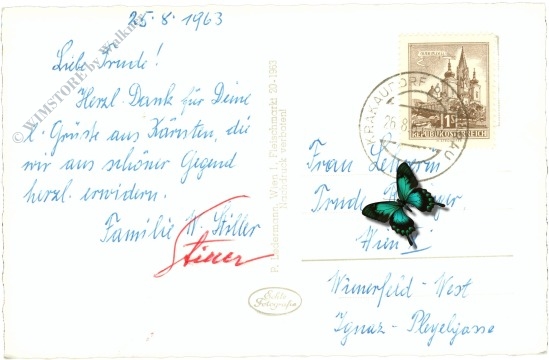 25.8.1963
Liebe Trude!
Herzl. Dank für Deine
l. Grüße aus Kärnten, die
wir aus schöner Gegend
herzl. erwidern.
Familie W. Stiller
Stiller
© WIMSTORE by Walkner
P. Ledermann, Wien I., Fleischmarkt 20 - 1963
Nachdruck verboten!
Echte
Fotografie
MARIAZELL
1S
REPUBLIK ÖSTERREICH
KRAKAUDORF
Frau Lehrerin
Trude
Wien
Wienerfeld - West
Ignaz - Pleyelgasse